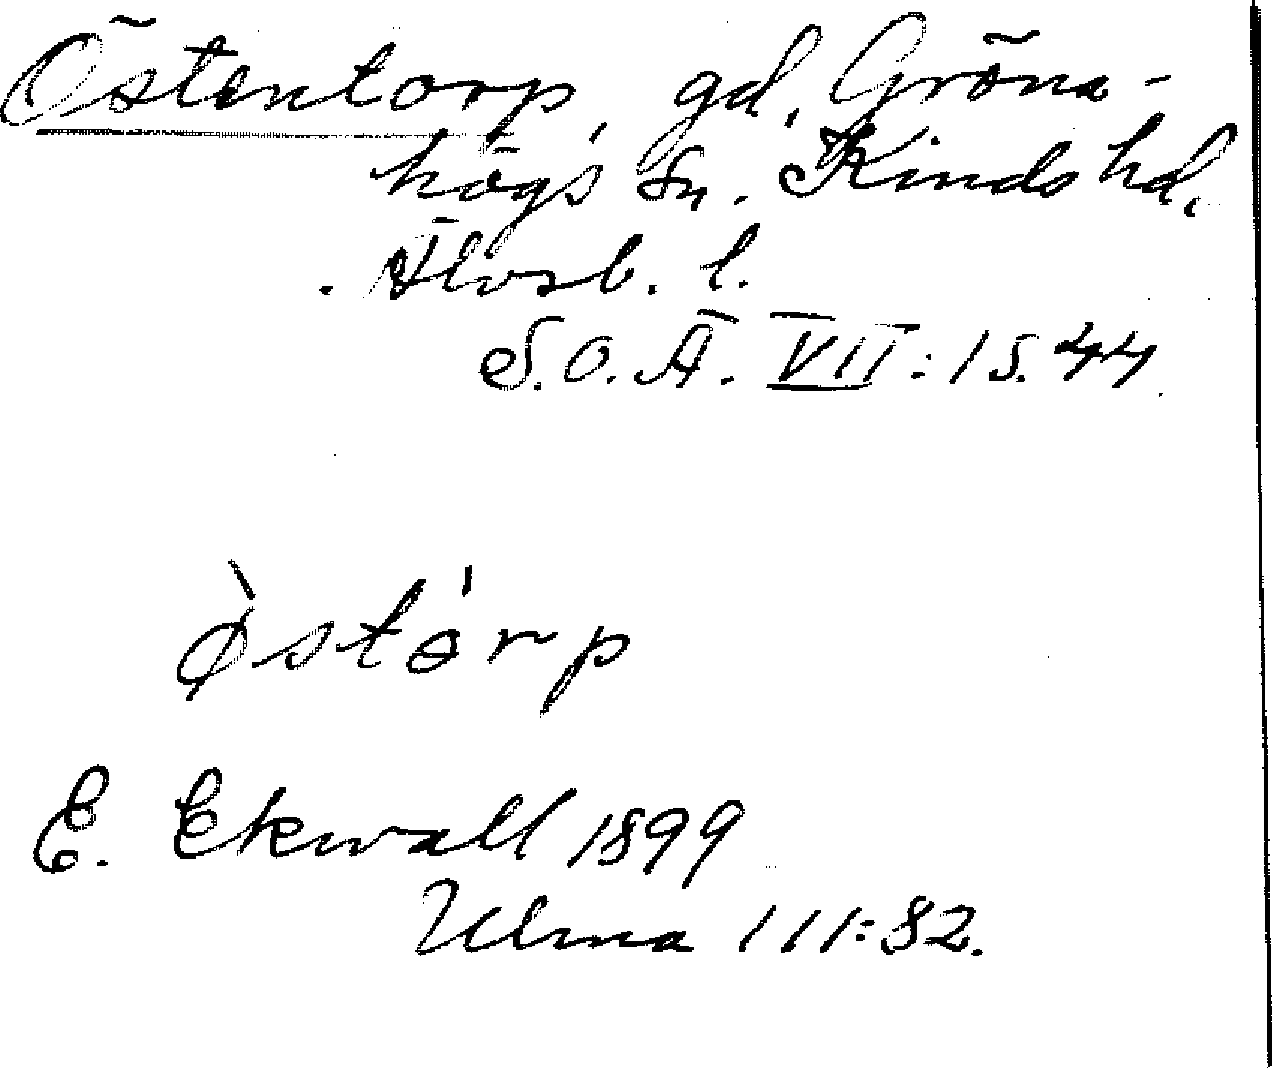 Östentorp, gd, Gröna-
högs sn. Kinds hd,
Älvsb. l.
S.O.Ä. VII:1 S. 44.
Ø̀stórp
E. Ekwall 1899
Ulma 111:82.